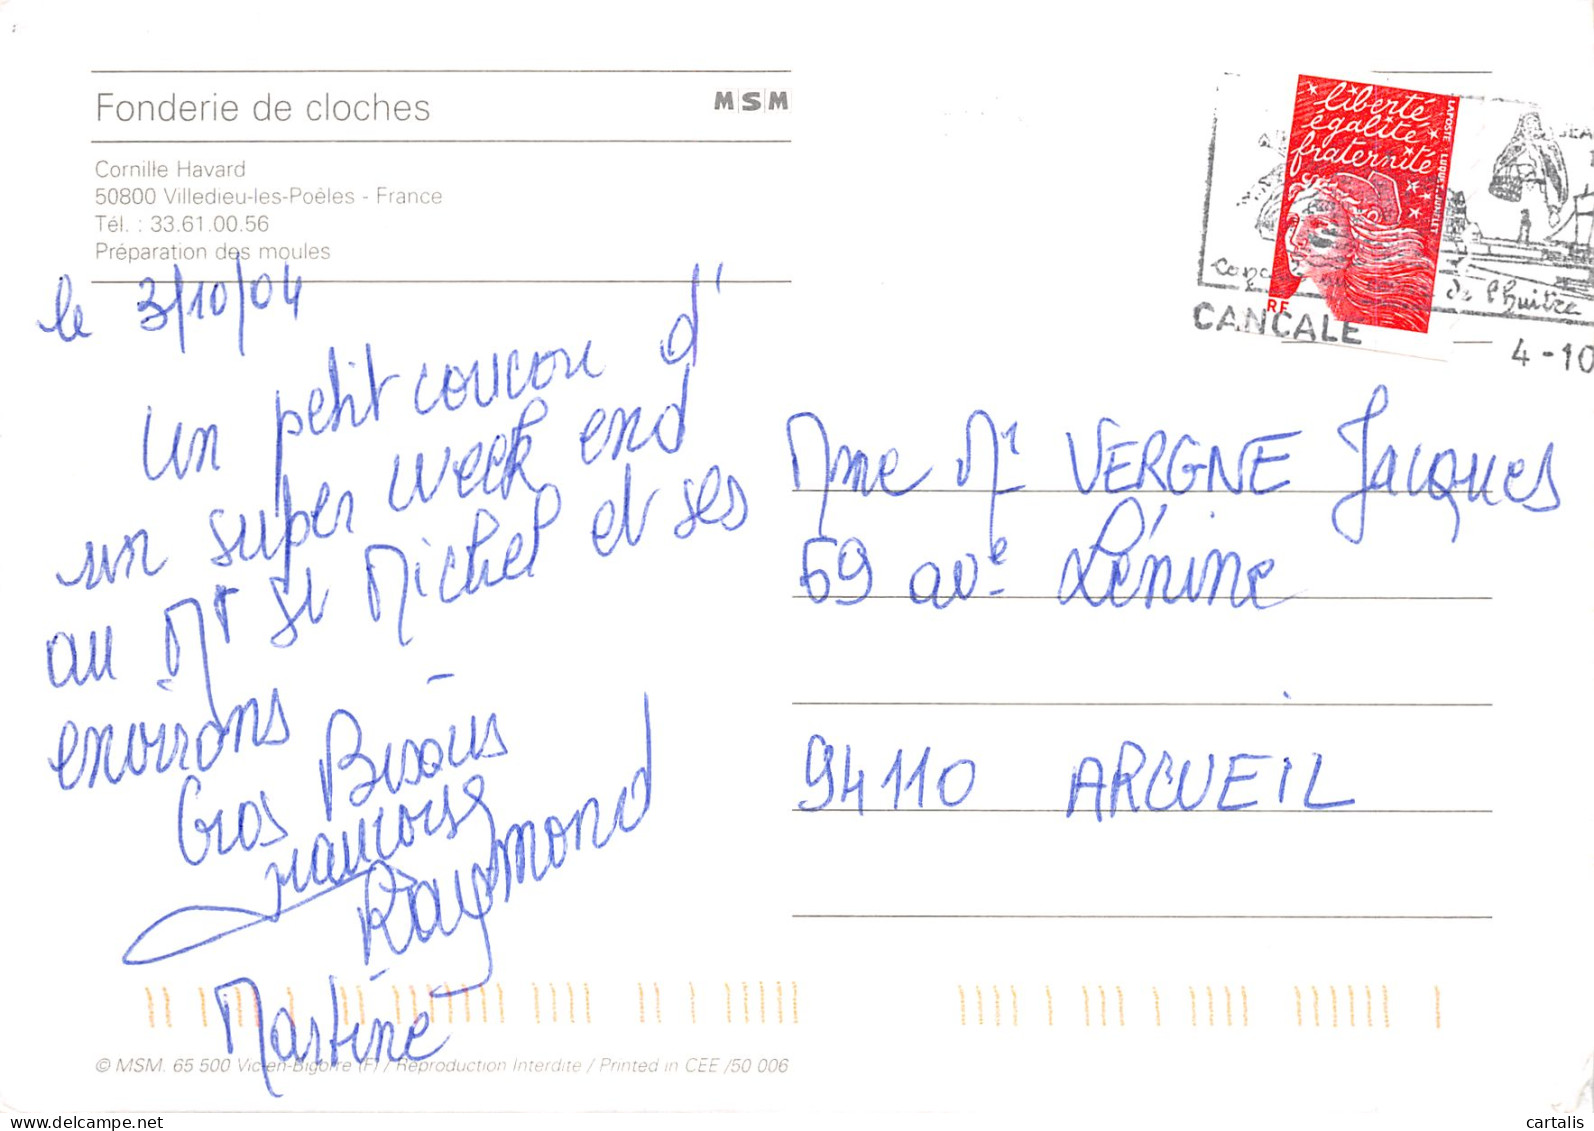 Fonderie de cloches
MSM
Cornille Havard
50800 Villedieu-les-Poêles - France
Tél. : 33.61.00.56
Préparation des moules
le 3/10/04
Un petit coucou d'
un super week end
au Mt St Michel et ses
environs -
Gros Bisous
Francoise
Raymond
Martine
© MSM. 65 500 Vic-en-Bigorre (F) / Reproduction Interdite / Printed in CEE /50 006
liberté
égalité
fraternité
LA POSTE LUQUET-JUMELET
RF
de l'huitre
CANCALE
4-10
Mme Mr VERGNE Jacques
69 ave Lénine
94110 ARCUEIL
cartalis
delcampe.net